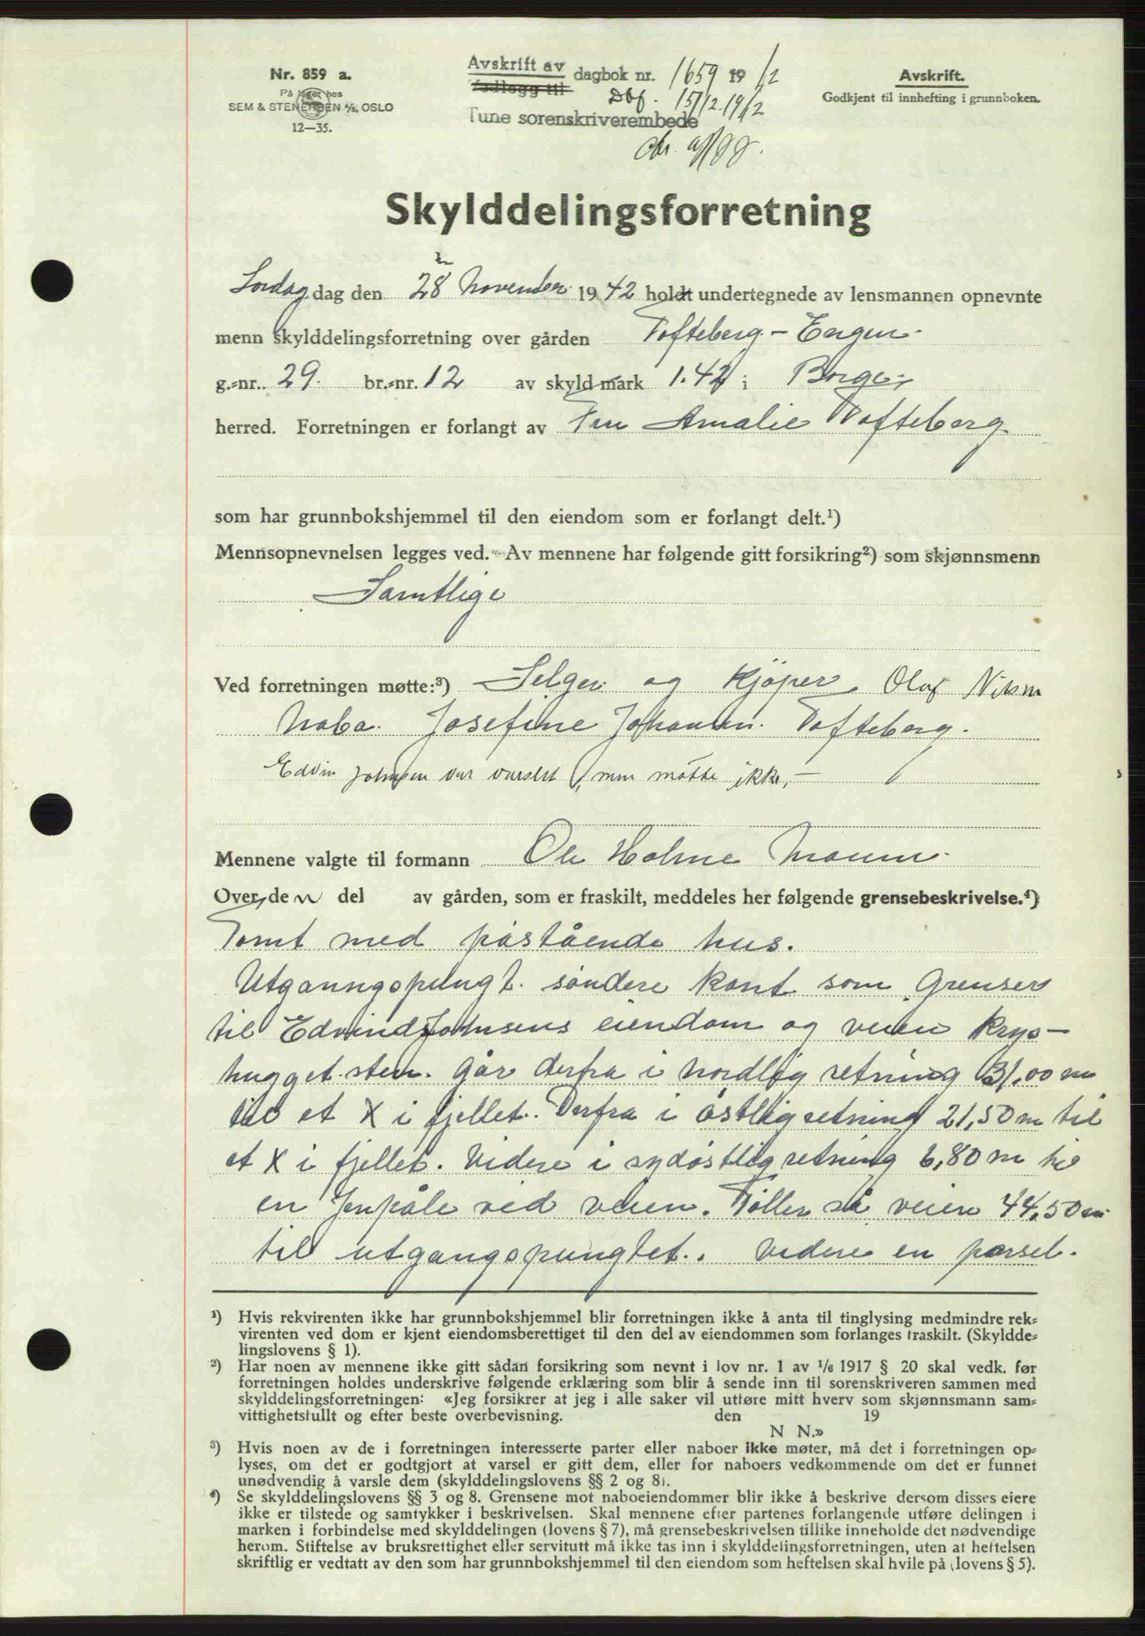 Nr. 859 a.
På lager hos
SEM & STENERSEN A/S, OSLO
12—35.
Avskrift av
Vedlegg til
dagbok nr. 1659 1942
Dbf. 15/12 1942
Tune sorenskriverembede
Avskrift.
Godkjent til innhefting i grunnboken.
Skylddelingsforretning
Lördag dag den 28 November 1942 holdt undertegnede av lensmannen opnevnte
menn skylddelingsforretning over gården Tofteberg - Engen
g.-nr. 29. br.-nr. 12 av skyld mark 1.42 i Borge
herred. Forretningen er forlangt av Fru Amalie Tofteberg
som har grunnbokshjemmel til den eiendom som er forlangt delt.¹)
Mennsopnevnelsen legges ved. Av mennene har følgende gitt forsikring²) som skjønnsmenn
Samtlige
Ved forretningen møtte:³) Selger og Kjöper Olaf Nilsen
Nabo. Josefine Johansen. Tofteberg.
Edvin Johnsen var varslet, men møtte ikke. —
Mennene valgte til formann Ole Holme
Over den del av gården, som er fraskilt, meddeles her følgende grensebeskrivelse.⁴)
Tomt med påstående hus.
Utganngspungt söndere kant som grenser
til Edvind Johnsens eiendom og veien kryss-
hugget sten. Går derfra i nordlig retning 31,00 m
til et X i fjellet. Derfra i östlig retning 21,50 m til
et X i fjellet. Videre i sydöstlig retning 6,80 m til
en Jenpåle ved veien. Föller så veien 44,50 m
til utgangspungtet. Videre en parsel.
¹) Hvis rekvirenten ikke har grunnbokshjemmel blir forretningen ikke å anta til tinglysing medmindre rek-
virenten ved dom er kjent eiendomsberettiget til den del av eiendommen som forlanges fraskilt. (Skyldde-
lingslovens § 1).
²) Har noen av mennene ikke gitt sådan forsikring som nevnt i lov nr. 1 av 1/6 1917 § 20 skal vedk. før
forretningen holdes underskrive følgende erklæring som blir å sende inn til sorenskriveren sammen med
skylddelingsforretningen: «Jeg forsikrer at jeg i alle saker vil utføre mitt hverv som skjønnsmann sam-
vittighetsfullt og efter beste overbevisning. den 19
N N.»
³) Hvis noen av de i forretningen interesserte parter eller naboer ikke møter, må det i forretningen op-
lyses, om det er godtgjort at varsel er gitt dem, eller for naboers vedkommende om det er funnet
unødvendig å varsle dem (skylddelingslovens §§ 2 og 8).
⁴) Se skylddelingslovens §§ 3 og 8. Grensene mot naboeiendommer blir ikke å beskrive dersom disses eiere
ikke er tilstede og samtykker i beskrivelsen. Skal mennene efter partenes forlangende utføre delingen i
marken i forbindelse med skylddelingen (lovens § 7), må grensebeskrivelsen tillike inneholde det nødvendige
herom. Stiftelse av bruksrettighet eller servitutt må ikke tas inn i skylddelingsforretningen, uten at heftelsen
skriftlig er vedtatt av den som har grunnbokshjemmel til den eiendom som heftelsen skal hvile på (lovens § 5).